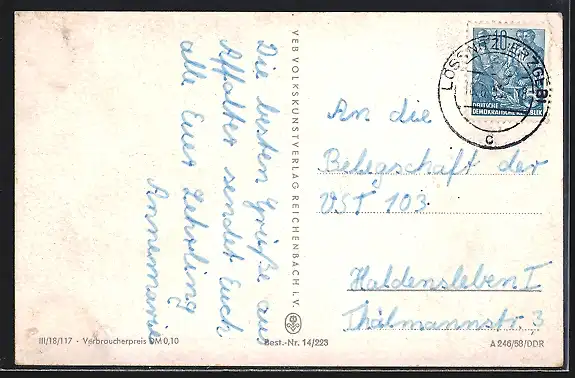 Die besten Grüße aus
Affalter sendet Euch
alle Euer Lehrling
Annemarie
VEB VOLKSKUNSTVERLAG REICHENBACH i. V.
10
DEUTSCHE
DEMOKRATISCHE REPUBLIK
LÖSSNITZ (ERZGEB)
c
An die
Belegschaft der
VST 103
Haldensleben I
Thälmannstr 3
III/18/117 · Verbraucherpreis DM 0,10
Best.-Nr. 14/223
A 246/58/DDR